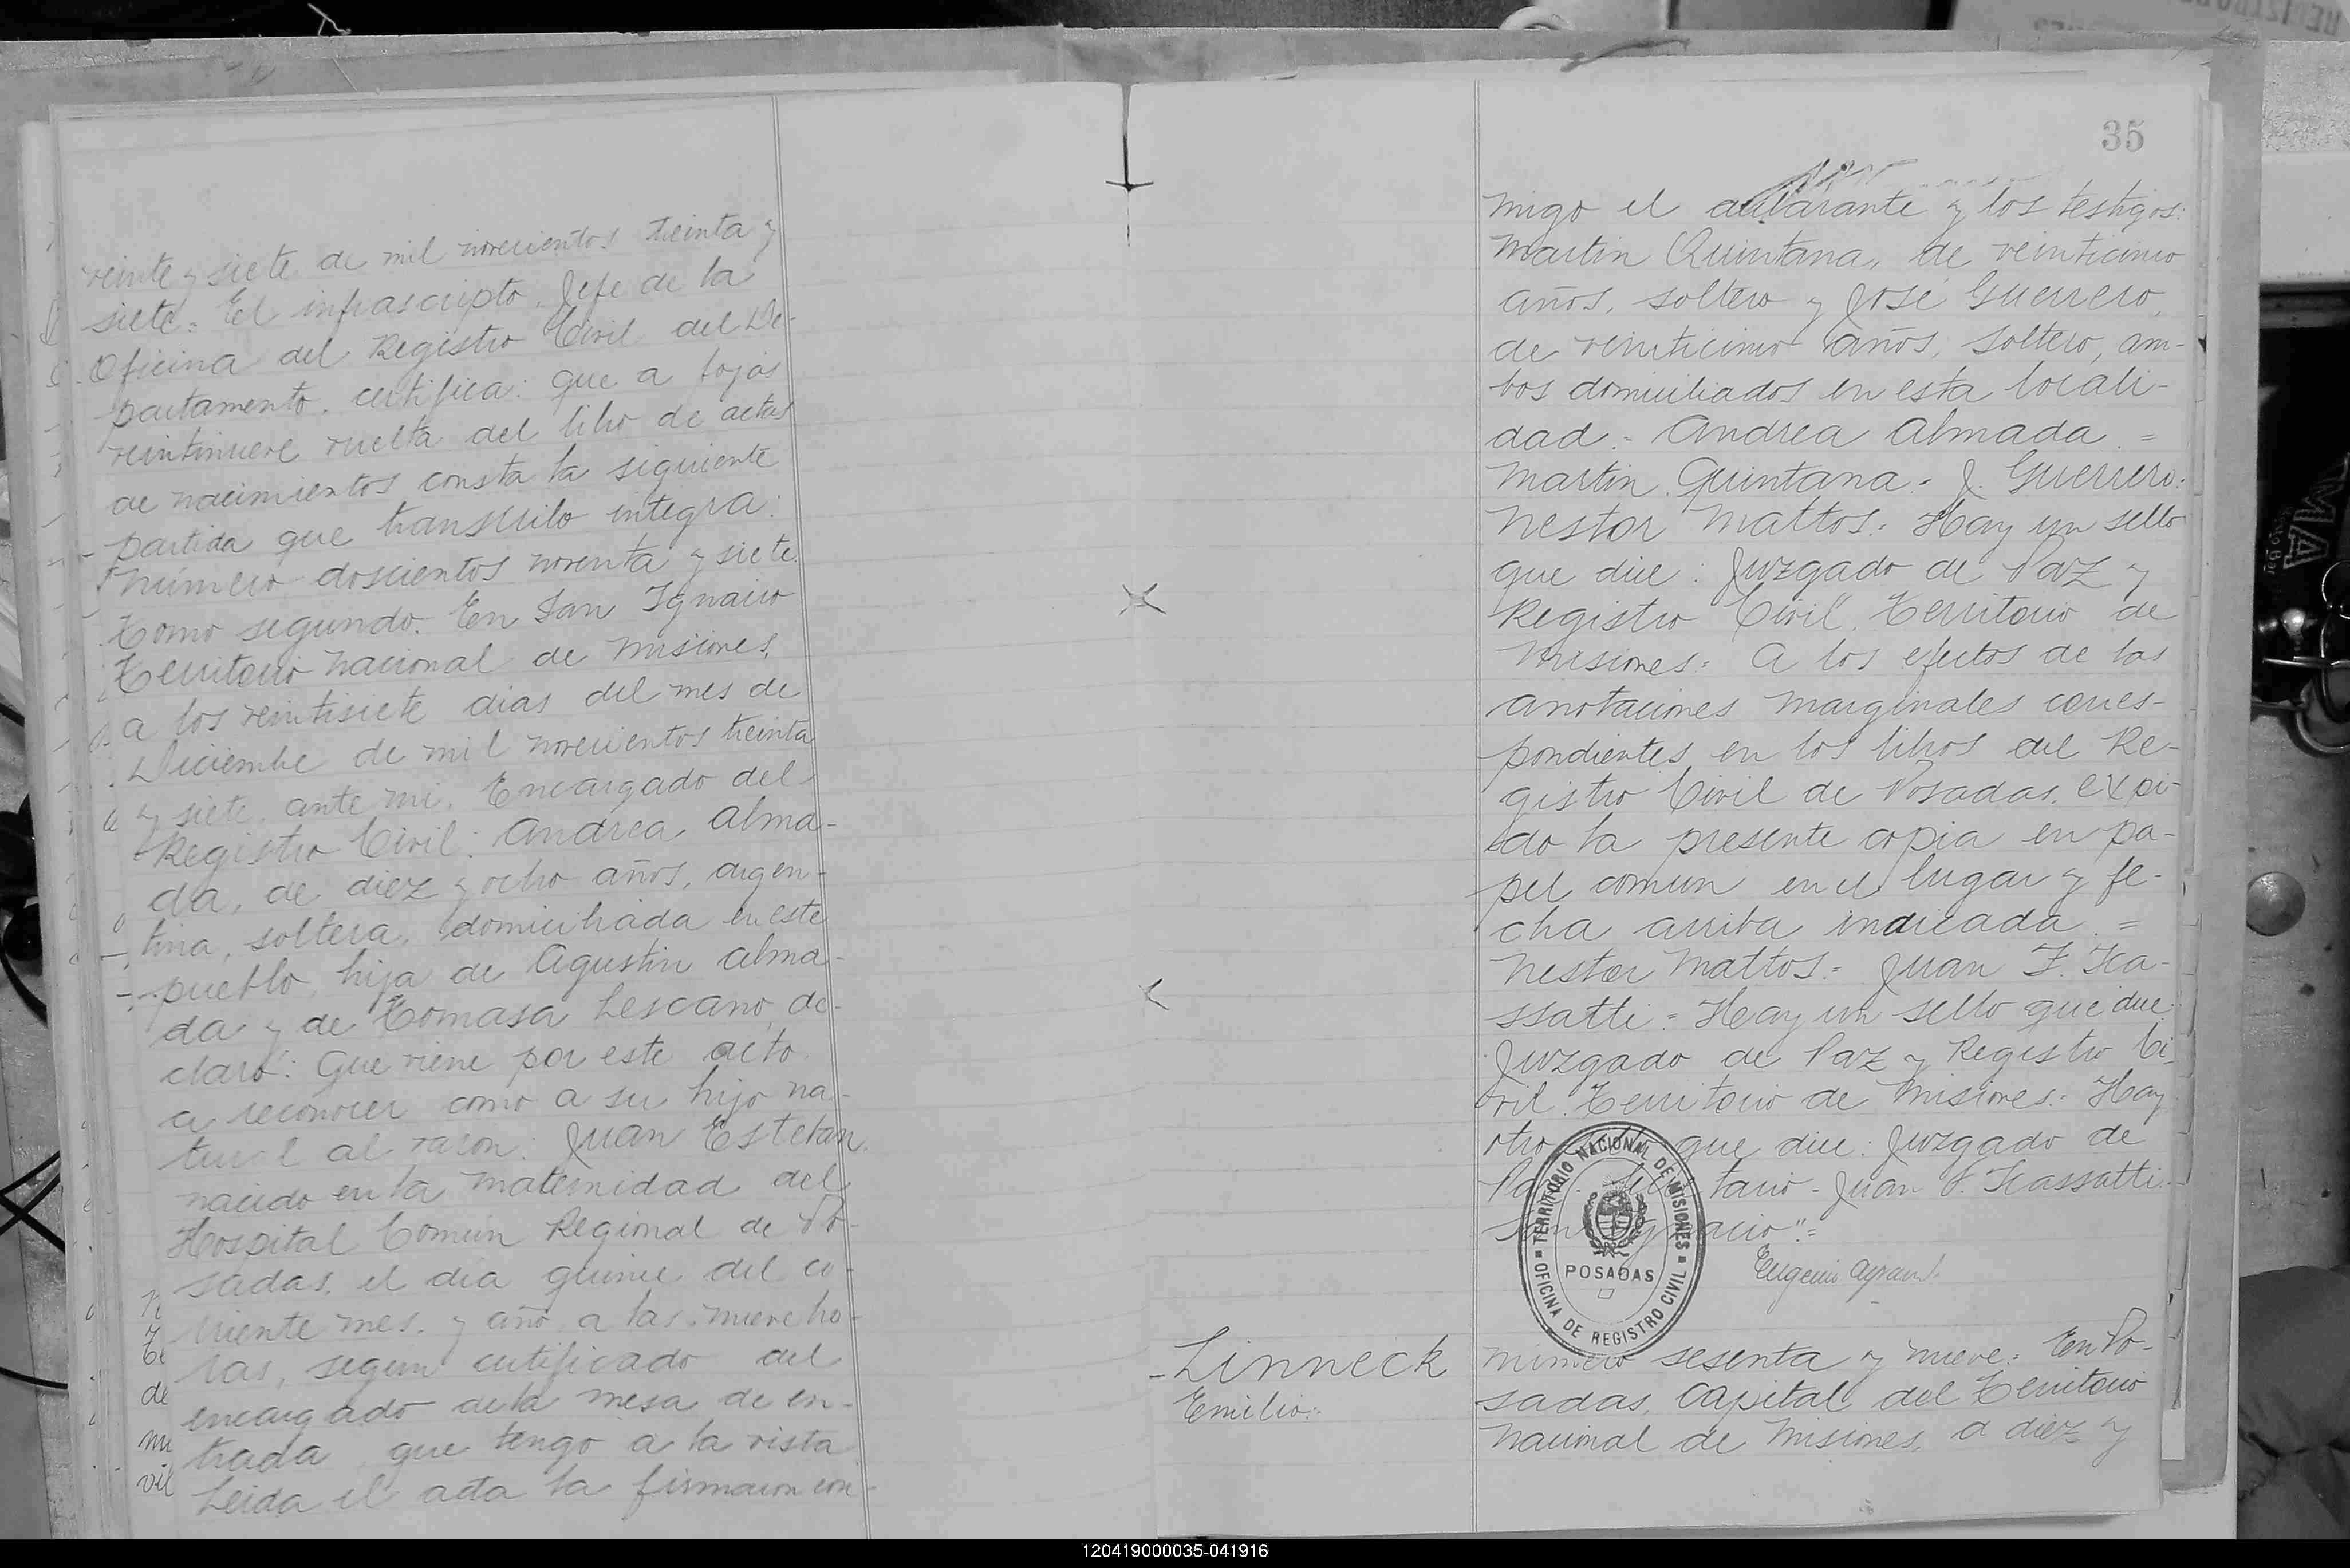 veinte y siete de mil novecientos treinta y
siete = El infrascripto, Jefe de la
Oficina del Registro Civil del De-
partamento, certifica: que a fojas
veintinueve vuelta del libro de actas
de nacimientos consta la siguiente
partida que transcribo integra:
"Número doscientos noventa y siete.
Tomo segundo. En San Ignacio
Territorio Nacional de Misiones,
a los veintisiete dias del mes de
Diciembre de mil novecientos treinta
y siete, ante mi, Encargado del
Registro Civil: Andrea Alma-
da, de diez y ocho años, argen-
tina, soltera, domiciliada en este
pueblo, hija de Agustin Alma-
da y de Tomasa Lescano, de-
claró: Que viene por este acto
a reconocer como a su hijo na-
tural al varon: Juan Esteban
nacido en la Maternidad del
Hospital Común Regional de Po-
sadas, el dia quince del co-
rriente mes y año a las nueve ho-
ras, segun certificado del
encargado de la mesa de en-
trada que tengo a la vista
Leida el acta la firmaron con-
35
migo el declarante y los testigos:
Martin Quintana, de veinticinco
años, soltero y José Guerrero,
de veinticinco años, soltero, am-
bos domiciliados en esta locali-
dad = Andrea Almada =
Martin Quintana = J. Guerrero =
Nestor Mattos = Hay un sello
que dice: Juzgado de Paz y
Registro Civil Territorio de
Misiones = A los efectos de las
anotaciones marginales corres-
pondientes en los libros del Re-
gistro Civil de Posadas, expi-
do la presente copia en pa-
pel comun en el lugar y fe-
cha arriba indicada =
Nestor Mattos = Juan
Hay un sello que dice:
Juzgado de Paz y Registro Ci-
vil. Territorio de Misiones = Hay
otro que dice: Juzgado de
Juan
San Ignacio" =
TERRITORIO NACIONAL DE MISIONES
POSADAS
OFICINA DE REGISTRO CIVIL
Eugenio
Linneck
Emilio =
Número sesenta y nueve = En Po-
sadas, Capital del Territorio
Nacional de Misiones, a diez y
120419000035-041916